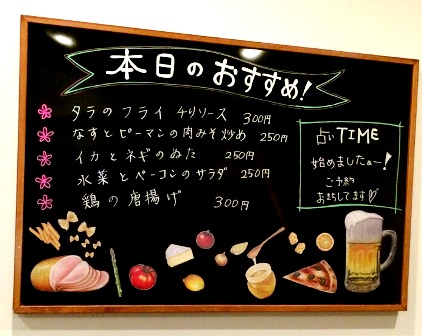 本日のおすすめ!
タラのフライ チリソース 300円
なすとピーマンの肉みそ炒め 250円
イカとネギのぬた 250円
水菜とベーコンのサラダ 250円
鶏の唐揚げ 300円
占いTIME
始めましたぁー!
ご予約
おまちしてます♡